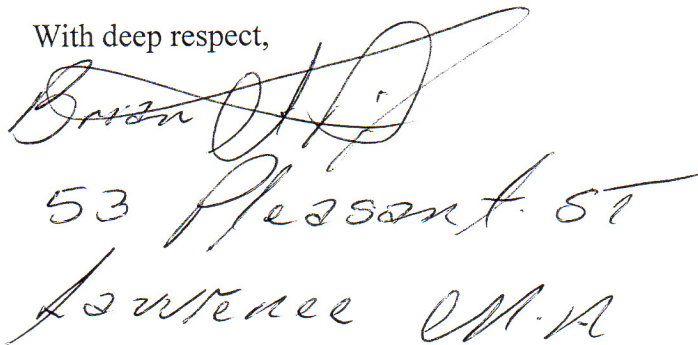 With deep respect,
Brian
53 Pleasant. ST
Lawrence M.A